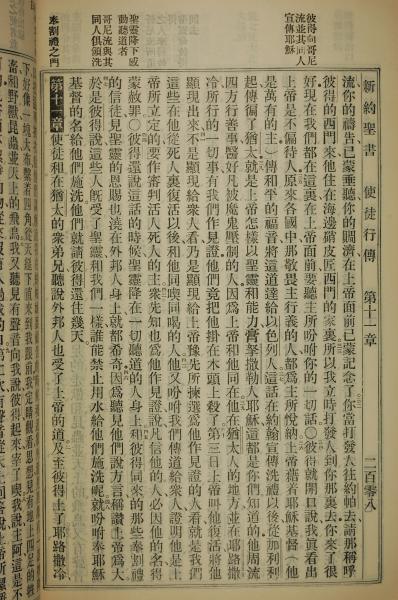 新約聖書　使徒行傳　第十一章　二百零八
彼得向哥尼
流並其同人
宣傳耶穌
聖靈降下感
動聽道者
哥尼流與其
同人俱領洗
奉割禮之門
流你的禱告已蒙垂聽你的賙濟在上帝面前已蒙記念了你當打發人往約帕去請那稱呼
彼得的西門來他住在海邊硝皮匠西門的家裏所以我立時打發人到你那裏去你來了很
好現在我們都在這裏在上帝面前要聽主所吩咐你的一切話〇彼得就開口說我眞看出
上帝是不偏待人原來各國中那敬畏主行義的人都爲主所悅納上帝藉着耶穌基督(他
是萬有的主)傳和平的福音將這道達給以色列人這話在約翰宣傳洗禮以後從加利利
起傳徧了猶太就是上帝怎樣以聖靈和能力膏拿撒勒人耶穌這都是你們知道的他周流
四方行善事醫好凡被魔鬼壓制的人因爲上帝和他同在他在猶太人的地方並在耶路撒
冷所行的一切事有我們作見證他們竟把他掛在木頭上殺了第三日上帝叫他復活將他
顯現出來不是顯現給衆人看乃是顯現給上帝豫先所揀選爲他作見證的人看就是我們
這些在他從死人裏復活以後和他同喫同喝的人他又吩咐我們傳道給衆人證明他是上
帝所立定的要作審判活人死人的主衆先知也爲他作見證說凡信他的人必因他的名得
蒙赦罪〇彼得還說這話的時候聖靈降在一切聽道的人身上和彼得同來的那些奉割禮
的信徒見聖靈的恩賜也澆在外邦人身上就都希奇因爲聽見他們說方言稱讚上帝爲大
於是彼得說這些人旣受了聖靈和我們一樣誰能禁止用水給他們施洗呢就吩咐奉耶穌
基督的名給他們施洗他們就請彼得還住幾天
第十一章　使徒和在猶太的衆弟兄聽說外邦人也受了上帝的道及至彼得上了耶路撒冷